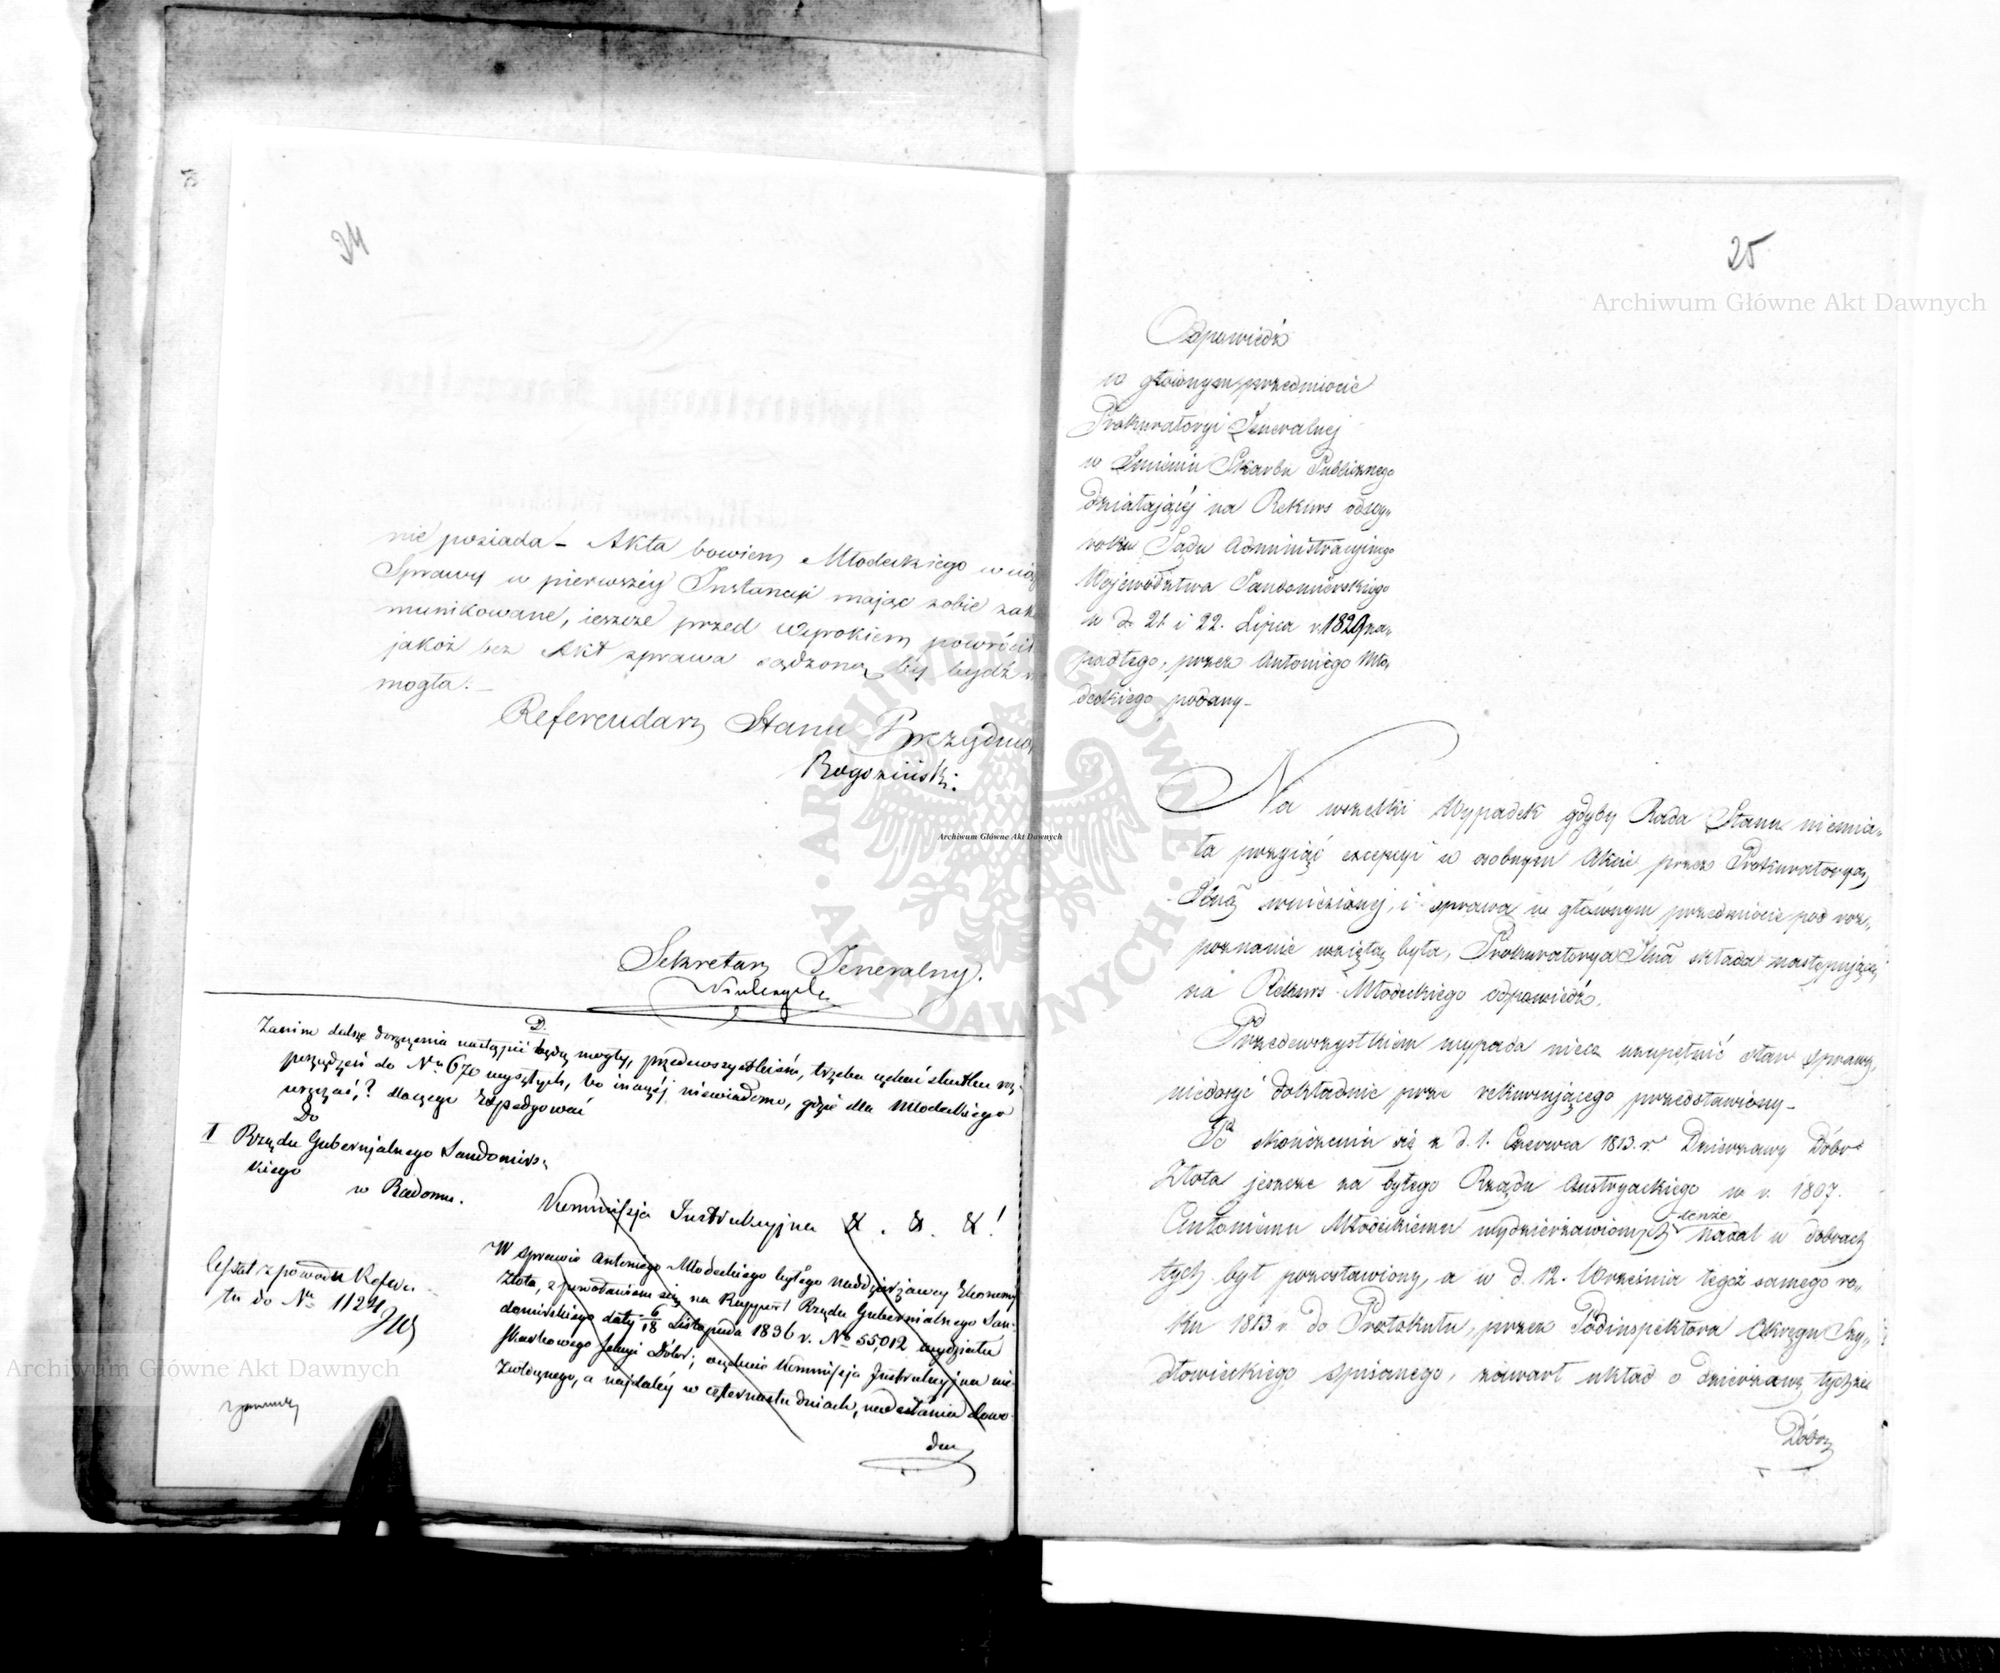 24
nie posiada – Akta bowiem Młodeckiego w ciąg
Sprawy w pierwszéy Instancyi maiąc sobie zako
munikowane, ieszcze przed Wyrokiem powrócił
jakoż bez Akt sprawa sądzoną by bydź n
mogła. –
Referendarz Stanu Prezyduią
Rogoziński.
Sekretarz Jeneralny.
D.
Zanim dalsze dorzęcenia nastąpić będą mogły, przedewszystkiém, trzeba czekać skutku roz-
porządzeń do Nru 670 wyszłych, bo inaczéj niewiadomo, gdzie dla Młodeckiego
wręczać,? dlaczego Expedyować
Do
1 Rządu Gubernjalnego Sandomirs-
kiego
w Radomiu.
Kommissja Instrukcyjna & . & . & !
W sprawie Antoniego Młodeckiego byłego naddzierżawcy Ekonomji
Złota, z powołaniem się na Rapport Rządu Gubernialnego San-
domirskiego daty 6/18 Listopada 1836 r. No 55,012 wydziału
Skarbowego Sekcyi Dóbr; oczekuie Kommissja Instrukcyjna nie-
zwłócznego, a najdaléy w czternastu dniach, nadesłania dowo-
du
Cessat z powodu Refera-
tu do Nru 1124
25
Odpowiedź
w głównym przedmiocie
Prokuratoryi Jeneralnej
w Imieniu Skarbu Publicznego
działającéj na Rekurs od Wy-
roku Sądu Administracyinego
Województwa Sandomierskiego
w d. 21. i 22. Lipca r. 1829 za-
padłego, przez Antoniego Mło-
deckiego podany –
Na wszelki Wypadek gdyby Rada Stanu niemia-
ła przyiąć excepcyi w osobnym Akcie przez Prokuratoryą
Jlną wniesionej, i sprawa w głównym przedmiocie pod roz-
poznanie wziętą była, Prokuratorya Jlna składa następującą
na Rekurs Młodeckiego odpowiedź.
Przedewszystkiem wypada nieco uzupełnić stan sprawy,
niedosyć dokładnie prze rekurującego przedstawiony –
Po skończeniu się z d. 1. Czerwca 1813. r. Dzierżawy Dóbr
Złota jeszcze za byłego Rządu Austryackiego w r. 1807.
Antoniemu Młodeckiemu wydzierżawionych tenże nadal w dobrach
tych był pozostawiony, a w d. 12. Września tegoż samego ro-
ku 1813 r. do Protokułu, przez Podinspektora Okręgu Szy-
dłowieckiego spisanego, zawarł układ o dzierżawę tychże
Dóbr
Archiwum Główne Akt Dawnych
Archiwum Główne Akt Dawnych
Archiwum Główne Akt Dawnych
ARCHIWUM GŁÓWNE AKT DAWNYCH